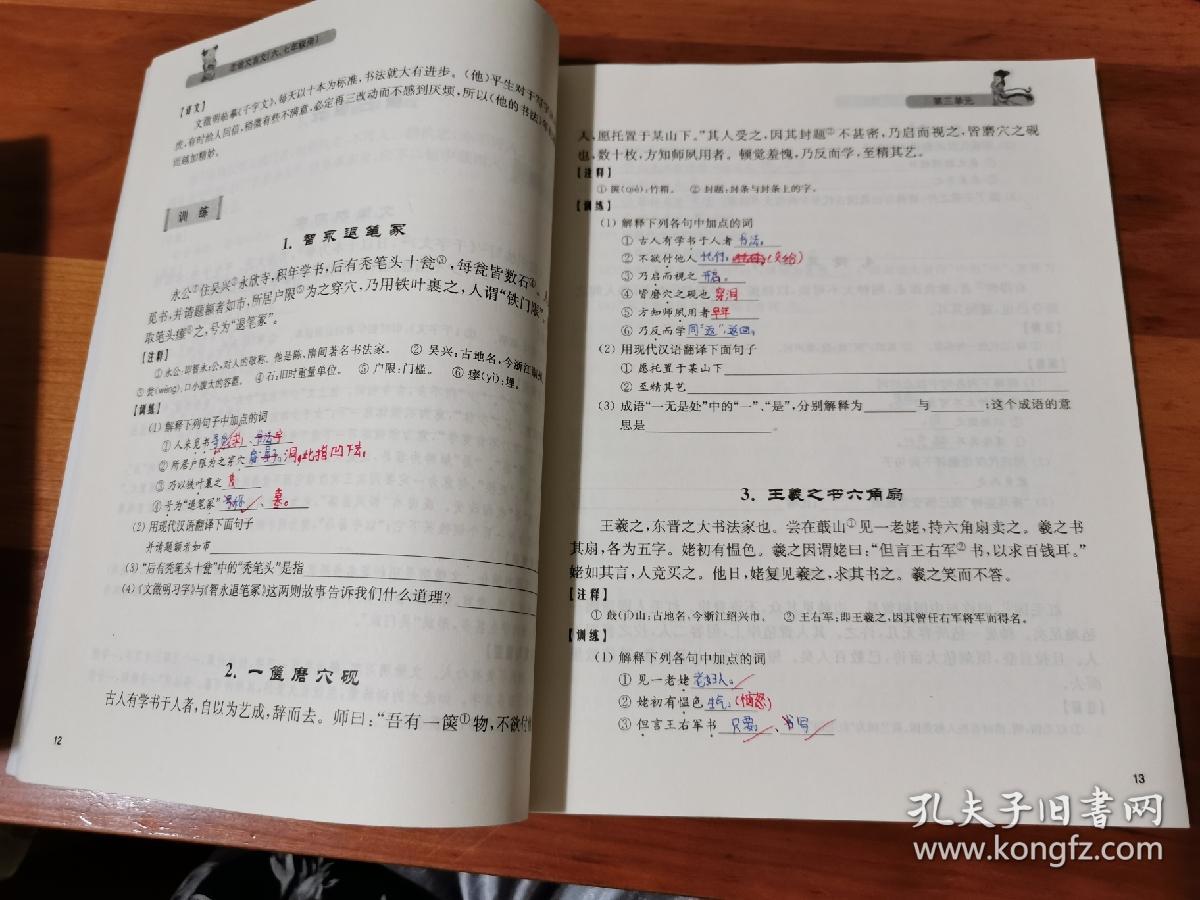 走进文言文(六、七年级用)
【译文】
文徵明临摹《千字文》,每天以十本为标准,书法就大有进步。(他)平生对于写字
拢,有时给人回信,稍微有些不满意,必定再三改动而不感到厌烦,所以(他的书法)
而越加精妙。
训 练
1. 智永退笔冢
永公①住吴兴②永欣寺,积年学书,后有秃笔头十瓮③,每瓮皆数石④。人
觅书,并请题额者如市,所居户限⑤为之穿穴,乃用铁叶裹之,人谓“铁门限”。
取笔头瘗⑥之,号为“退笔冢”。
【注释】
① 永公:即智永;公,对人的敬称。他是陈、隋间著名书法家。 ② 吴兴:古地名,今浙江湖州。
③ 瓮(wèng):口小腹大的容器。 ④ 石:旧时重量单位。 ⑤ 户限:门槛。 ⑥ 瘗(yì):埋。
【训练】
(1) 解释下列句子中加点的词
① 人来觅书
② 所居户限为之穿穴 洞,此指凹下去。
③ 乃以铁叶裹之
④ 号为“退笔冢” 号称、墓。
(2) 用现代汉语翻译下面句子
并请题额者如市
(3) “后有秃笔头十瓮”中的“秃笔头”是指
(4) 《文徵明习字》与《智永退笔冢》这两则故事告诉我们什么道理?
2. 一箧磨穴砚
古人有学书于人者,自以为艺成,辞而去。师曰:“吾有一箧①物,不欲付他
12
第三单元
人,愿托置于某山下。”其人受之,因其封题②不甚密,乃启而视之,皆磨穴之砚
也,数十枚,方知师夙用者。顿觉羞愧,乃反而学,至精其艺。
【注释】
① 箧(qiè):竹箱。 ② 封题:封条与封条上的字。
【训练】
(1) 解释下列各句中加点的词
① 古人有学书于人者 书法。
② 不欲付他人 托付。 (交给)
③ 乃启而视之 开启。
④ 皆磨穴之砚也 穿洞
⑤ 方知师夙用者 早年
⑥ 乃反而学 同“返”,返回。
(2) 用现代汉语翻译下面句子
① 愿托置于某山下
② 至精其艺
(3) 成语“一无是处”中的“一”、“是”,分别解释为 与 ;这个成语的意
思是
3. 王羲之书六角扇
王羲之,东晋之大书法家也。尝在蕺山①见一老姥,持六角扇卖之。羲之书
其扇,各为五字。姥初有愠色。羲之因谓姥曰:“但言王右军②书,以求百钱耳。”
姥如其言,人竞买之。他日,姥复见羲之,求其书之。羲之笑而不答。
【注释】
① 蕺(jí)山:古地名,今浙江绍兴市。 ② 王右军:即王羲之,因其曾任右军将军而得名。
【训练】
(1) 解释下列各句中加点的词
① 见一老姥 老妇人。
② 姥初有愠色 生气。(愤怒)
③ 但言王右军书 只要、书写
13
孔夫子旧书网
www.kongfz.com